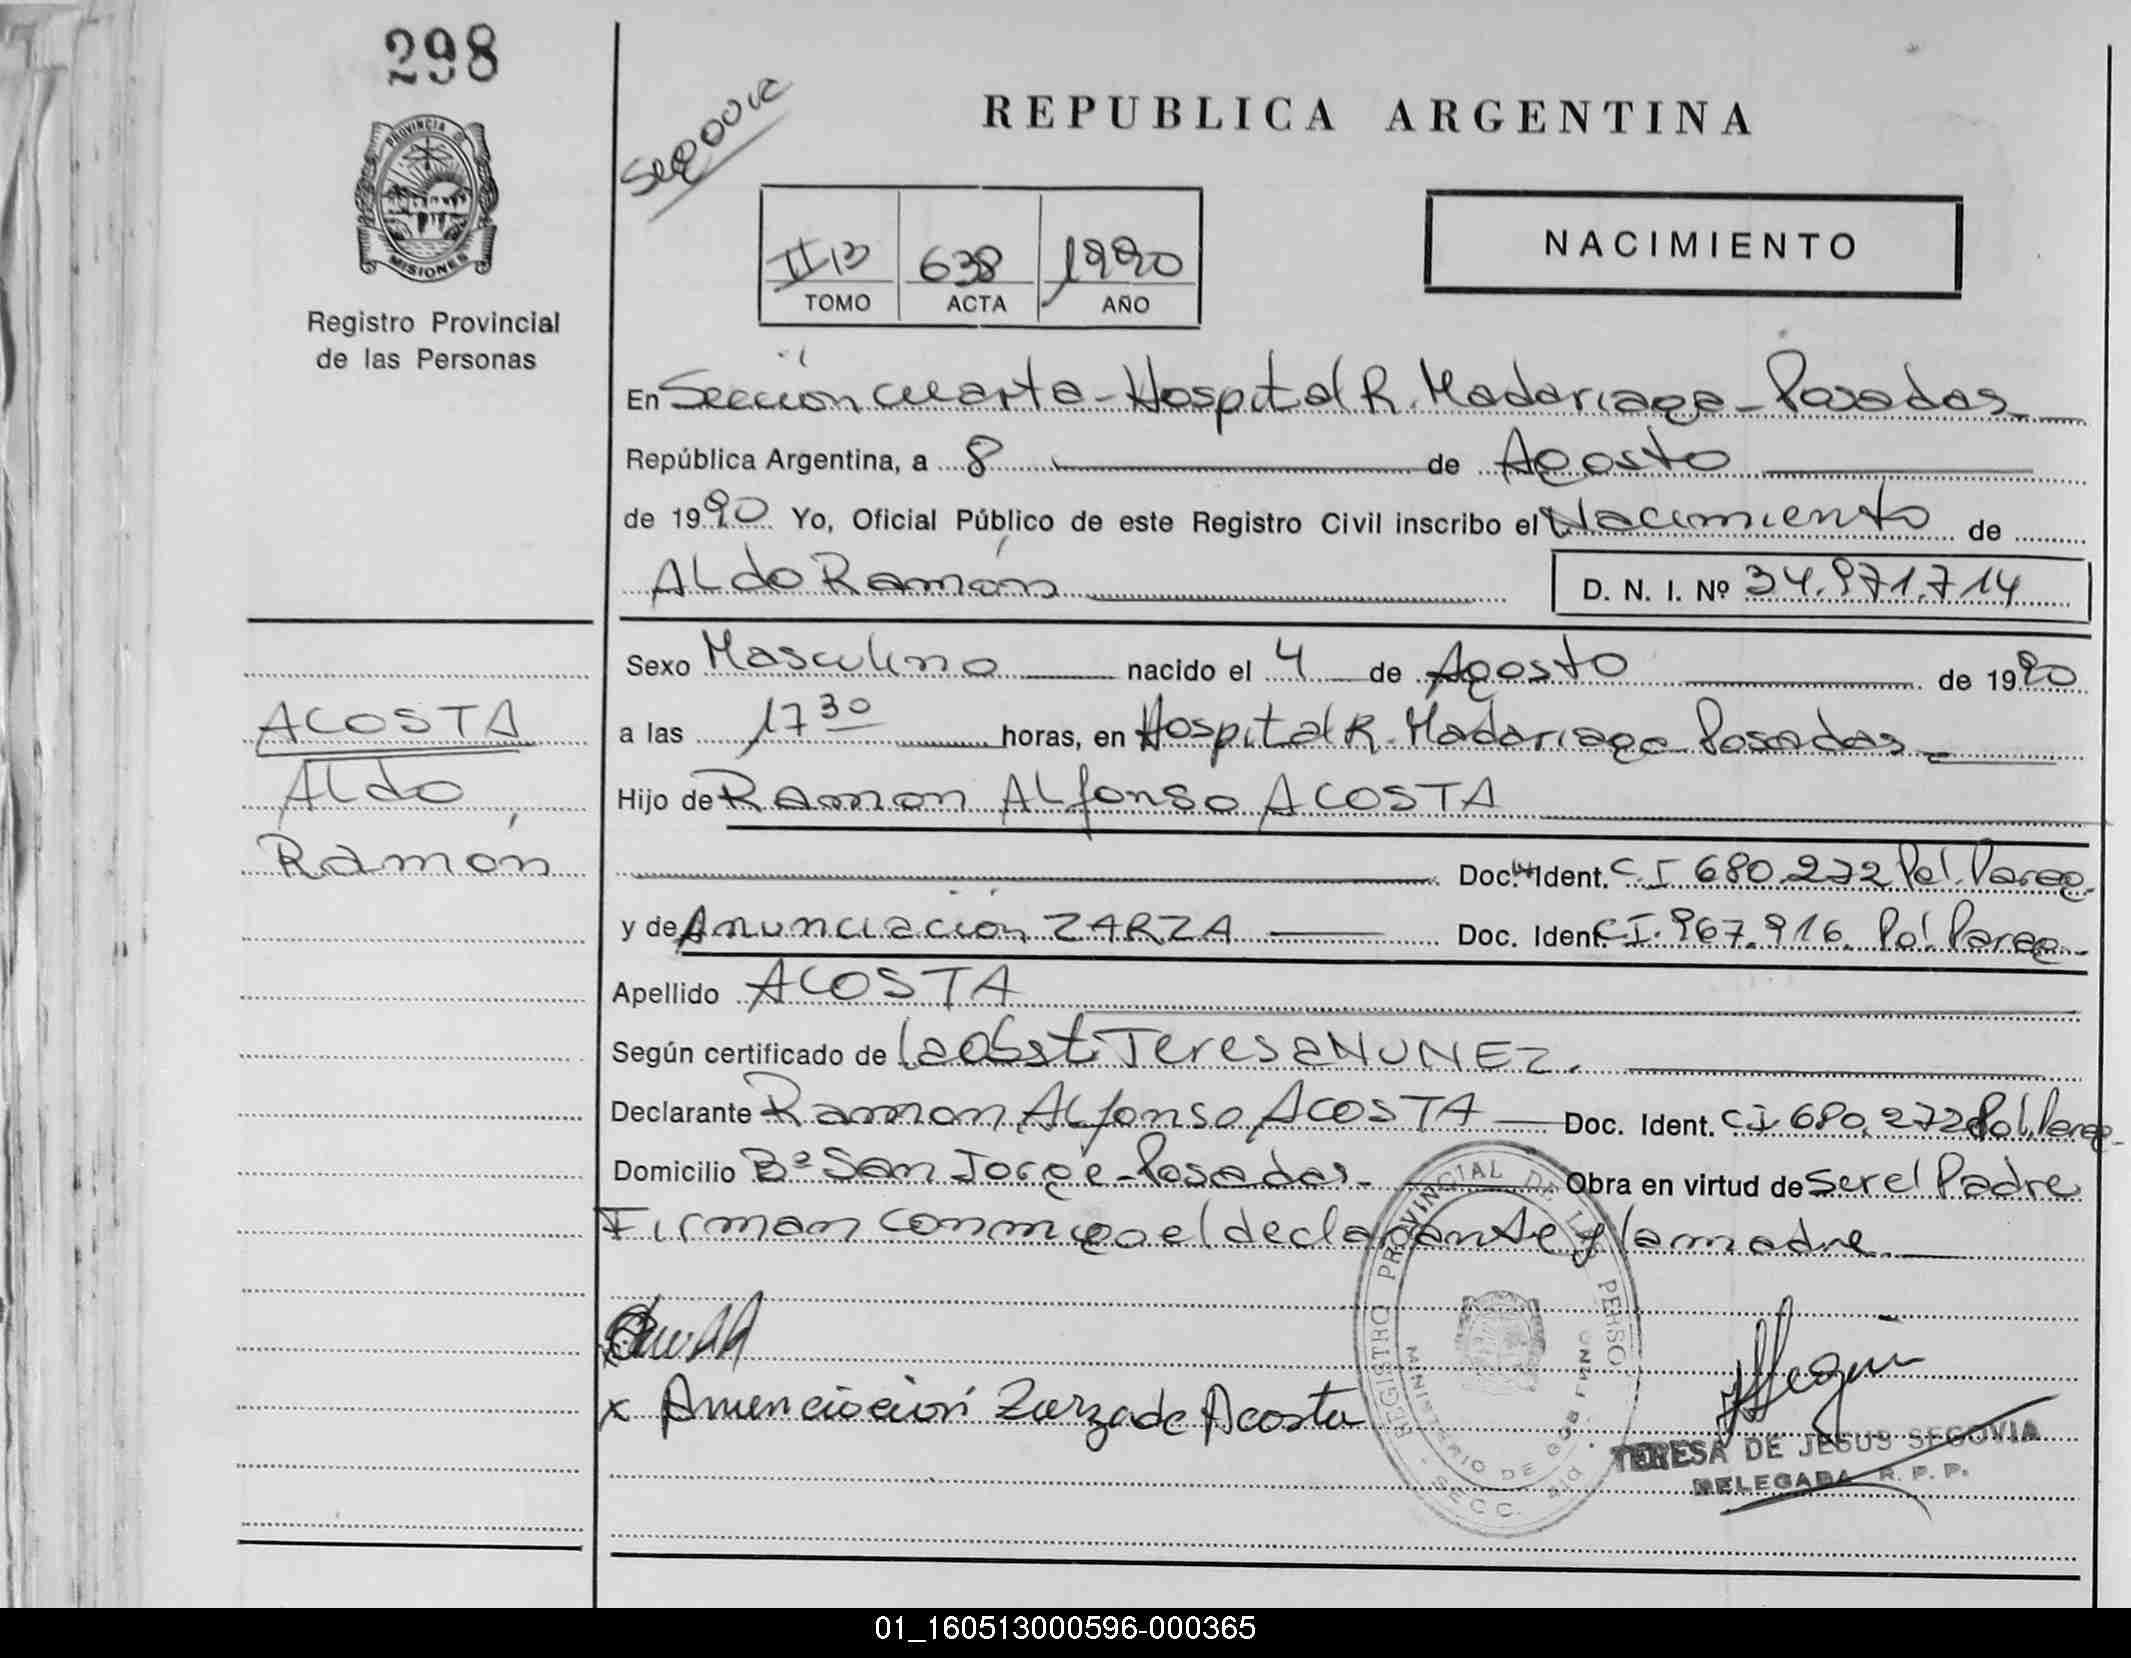 298
PROVINCIA DE
MISIONES
Registro Provincial
de las Personas
REPUBLICA ARGENTINA
II B 638 1990
TOMO ACTA AÑO
NACIMIENTO
En Sección cuarta - Hospital R. Madariaga - Posadas
República Argentina, a 8 de Agosto
de 1990 Yo, Oficial Público de este Registro Civil inscribo el Nacimiento de
Aldo Ramón D. N. I. Nº 34.971.714
Sexo Masculino nacido el 4 de Agosto de 1990
ACOSTA
a las 17 30 horas, en Hospital R. Madariaga Posadas
Aldo
Hijo de Ramon Alfonso ACOSTA
Ramón
Doc. Ident. C.I 680.272 Pol. Parag.
y de Anunciación ZARZA Doc. Ident. C.I. 967.916. Pol. Parag.
Apellido ACOSTA
Según certificado de la Obst. Teresa NUNEZ.
Declarante Ramon Alfonso ACOSTA Doc. Ident. C.I 680.272 Pol. Parag.
Domicilio Bº San Jorge - Posadas - Obra en virtud de ser el Padre
Firman conmigo el declarante y la madre
x Anunciación Zarza de Acosta
REGISTRO PROVINCIAL DE LAS PERSO.
MINISTERIO DE GOB
SECC. 4ta
TERESA DE JESUS SEGOVIA
DELEGADA R. P. P.
01_160513000596-000365